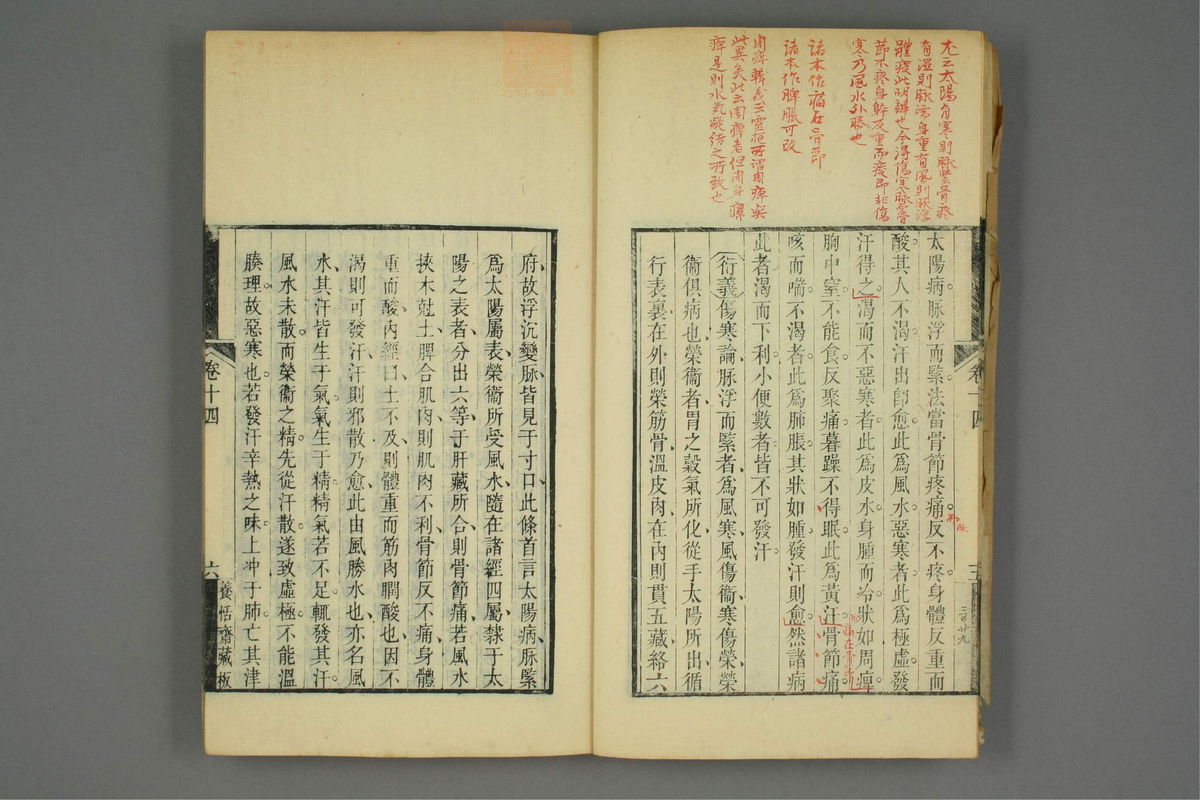 尤云太陽有寒則脉緊骨疼
有濕則脉濡身重有風則脉浮
體痠此明辨也今得傷寒脉
節不疼身幹反重而痠即非傷
寒乃風水外勝也
諸本作痛在骨節
諸本作脾脹可改
周痺
此異矣此云周痺者但周身
痺是則水氣凝結之所致也
太陽病脉浮而緊法當骨節疼痛反不疼身體反重而
酸其人不渴汗出卽愈此爲風水惡寒者此爲極虛發
汗得之渴而不惡寒者此爲皮水身腫而冷狀如周痺
胸中窒不能食反聚痛暮躁不得眠此爲黃汗骨節痛
咳而喘不渴者此爲肺脹其狀如腫發汗則愈然諸病
此者渴而下利小便數者皆不可發汗
衍義傷寒論脉浮而緊者爲風寒風傷衞寒傷榮榮
衞俱病也榮衞者胃之穀氣所化從手太陽所出循
行表裏在外則榮筋骨溫皮肉在內則貫五藏絡六
而脉
痛在骨節
卷十四
三
府故浮沉變脉皆見于寸口此條首言太陽病脉緊
爲太陽屬表榮衞所受風水隨在諸經四屬隸于太
陽之表者分出六等于肝藏所合則骨節痛若風水
挾木尅土脾合肌肉則肌肉不利骨節反不痛身體
重而酸內經曰土不及則體重而筋肉瞤酸也因不
渴則可發汗汗則邪散乃愈此由風勝水也亦名風
水其汗皆生于氣氣生于精精氣若不足輒發其汗
風水未散而榮衞之精先從汗散遂致虛極不能溫
腠理故惡寒也若發汗辛熱之味上冲于肺亡其津
卷十四
六
養恬齋藏板